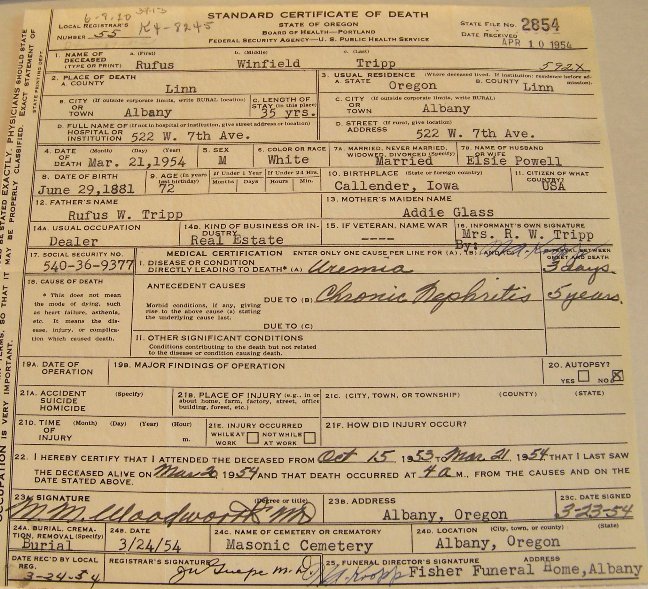 6-9.20
K4-8245
STANDARD CERTIFICATE OF DEATH
STATE OF OREGON
LOCAL REGISTRAR'S
NUMBER 55
BOARD OF HEALTH—PORTLAND
FEDERAL SECURITY AGENCY—U. S. PUBLIC HEALTH SERVICE
STATE FILE NO. 2854
DATE RECEIVED APR 10 1954
1. NAME OF DECEASED (TYPE OR PRINT) a. (First) b. (Middle) c. (Last)
Rufus Winfield Tripp 592X
2. PLACE OF DEATH
A. COUNTY Linn
3. USUAL RESIDENCE (Where deceased lived. If institution: residence before admission).
A. STATE Oregon B. COUNTY Linn
B. CITY (If outside corporate limits, write RURAL location) OR TOWN Albany
C. LENGTH OF STAY (in this place) 35 yrs.
C. CITY (If outside corporate limits, write RURAL location) OR TOWN Albany
D. FULL NAME OF (If not in hospital or institution, give street address or location) HOSPITAL OR INSTITUTION 522 W. 7th Ave.
D. STREET (If rural, give location) ADDRESS 522 W. 7th Ave.
4. DATE OF DEATH (Month) (Day) (Year) Mar. 21,1954
5. SEX M
6. COLOR OR RACE White
7A. MARRIED, NEVER MARRIED, WIDOWED, DIVORCED (Specify) Married
7B. NAME OF HUSBAND OR WIFE Elsie Powell
8. DATE OF BIRTH June 29,1881
9. AGE (In years last birthday) 72
If Under 1 Year Months Days
If Under 24 Hrs. Hours Min.
10. BIRTHPLACE (State or foreign country) Callender, Iowa
11. CITIZEN OF WHAT COUNTRY? USA
12. FATHER'S NAME Rufus W. Tripp
13. MOTHER'S MAIDEN NAME Addie Glass
14A. USUAL OCCUPATION Dealer
14B. KIND OF BUSINESS OR INDUSTRY Real Estate
15. IF VETERAN, NAME WAR ----
16. INFORMANT'S OWN SIGNATURE Mrs. R. W. Tripp
By:
17. SOCIAL SECURITY NO. 540-36-9377
MEDICAL CERTIFICATION ENTER ONLY ONE CAUSE PER LINE FOR (A), (B)
ONSET AND DEATH
I. DISEASE OR CONDITION DIRECTLY LEADING TO DEATH* (A) Uremia 3 days.
18. CAUSE OF DEATH
* This does not mean the mode of dying, such as heart failure, asthenia, etc. It means the disease, injury, or complication which caused death.
ANTECEDENT CAUSES
Morbid conditions, if any, giving rise to the above cause (a) stating the underlying cause last.
DUE TO (B) Chronic Nephritis 5 years.
DUE TO (C)
II. OTHER SIGNIFICANT CONDITIONS
Conditions contributing to the death but not related to the disease or condition causing death.
19A. DATE OF OPERATION
19B. MAJOR FINDINGS OF OPERATION
20. AUTOPSY? YES NO X
21A. ACCIDENT SUICIDE HOMICIDE (Specify)
21B. PLACE OF INJURY (e.g., in or about home, farm, factory, street, office building, forest, etc.)
21C. (CITY, TOWN, OR TOWNSHIP) (COUNTY) (STATE)
21D. TIME OF INJURY (Month) (Day) (Year) (Hour) m.
21E. INJURY OCCURRED WHILE AT WORK NOT WHILE AT WORK
21F. HOW DID INJURY OCCUR?
22. I HEREBY CERTIFY THAT I ATTENDED THE DECEASED FROM Oct 15 1953, Mar 21, 1954 THAT I LAST SAW
THE DECEASED ALIVE ON Mar 20 1954 AND THAT DEATH OCCURRED AT 4 a M., FROM THE CAUSES AND ON THE
DATE STATED ABOVE.
23A. SIGNATURE (Degree or title) M M Woodworth MD
23B. ADDRESS Albany, Oregon
23C. DATE SIGNED 3-23-54
24A. BURIAL, CREMATION, REMOVAL (Specify) Burial
24B. DATE 3/24/54
24C. NAME OF CEMETERY OR CREMATORY Masonic Cemetery
24D. LOCATION (City, town, or county) (State) Albany, Oregon
DATE REC'D BY LOCAL REG. 3-24-54
REGISTRAR'S SIGNATURE M.D.
25. FUNERAL DIRECTOR'S SIGNATURE ADDRESS
Fisher Funeral Home, Albany